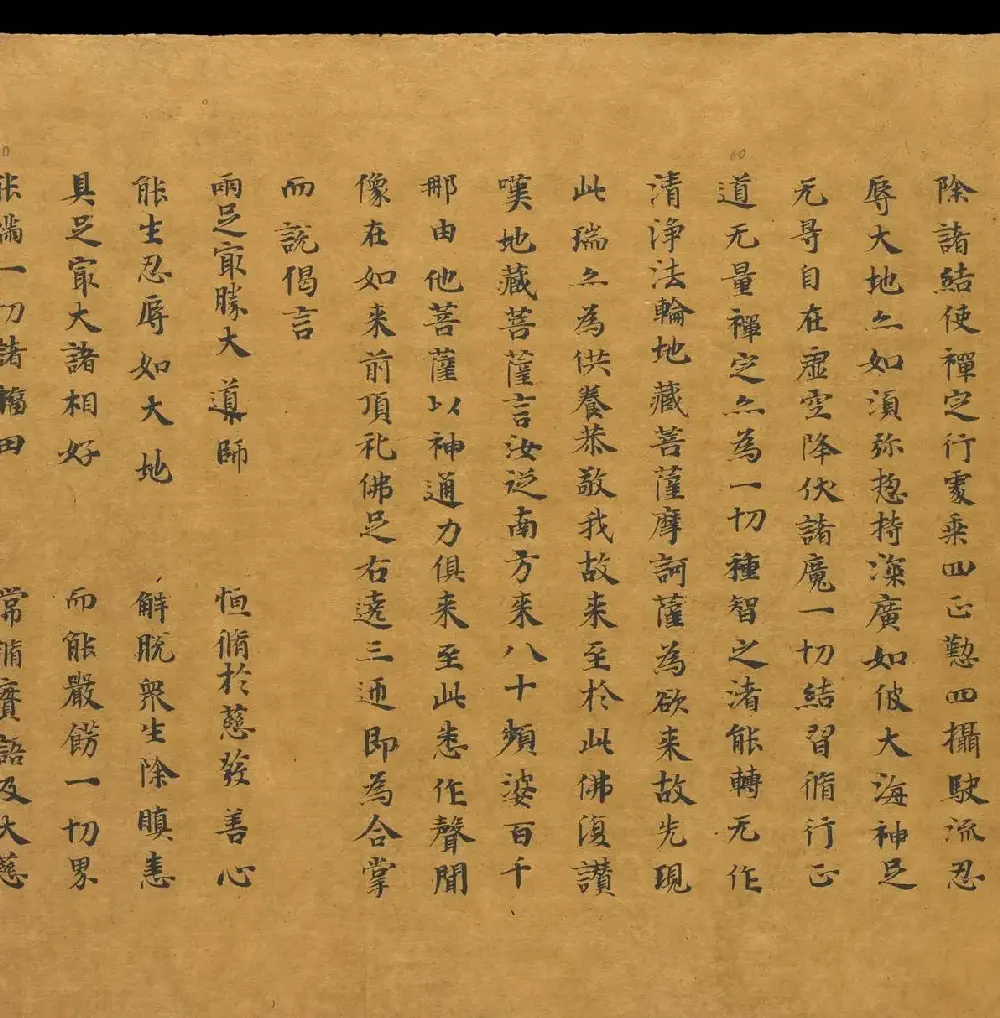 除諸結使禪定行處乘四正懃四攝駛流忍
辱大地亦如須弥揔持深廣如彼大海神足
无㝵自在虛空降伏諸魔一切結習脩行正
道无量禪定亦為一切種智之渚能轉无作
清淨法輪地藏菩薩摩訶薩為欲来故先現
此瑞亦為供養恭敬我故来至於此佛復讃
嘆地藏菩薩言汝從南方来八十頻婆百千
那由他菩薩以神通力俱来至此悉作聲聞
像在如来前頂礼佛足右遶三迊即為合掌
而說偈言
兩足㝡勝大導師 恒脩於慈發善心
能生忍辱如大地 解脫衆生除瞋恚
具足㝡大諸相好 而能嚴餝一切界
能滿一切諸福田 常脩實語及大慈